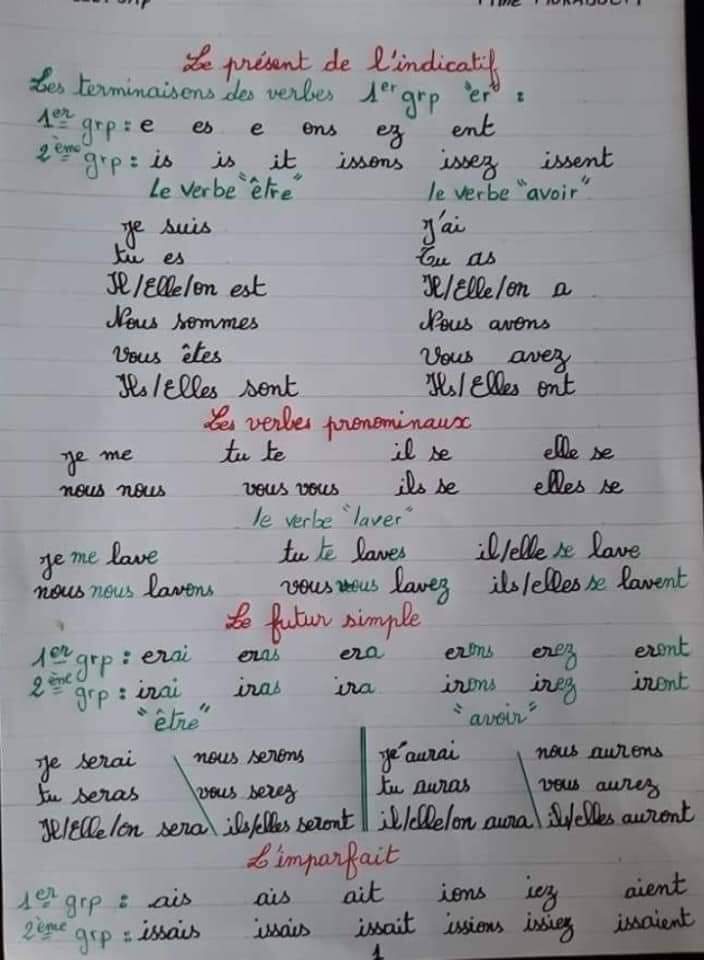 Le présent de l'indicatif
Les terminaisons des verbes 1er grp "er" :
1er grp : e es e ons ez ent
2ème grp : is is it issons issez issent
Le verbe "être" le verbe "avoir"
Je suis J'ai
tu es Tu as
Il/Elle/on est Il/Elle/on a
Nous sommes Nous avons
Vous êtes Vous avez
Ils/Elles sont Ils/Elles ont
Les verbes pronominaux
Je me tu te il se elle se
nous nous vous vous ils se elles se
le verbe "laver"
Je me lave tu te laves il/elle se lave
nous nous lavons vous vous lavez ils/elles se lavent
Le futur simple
1er grp : erai eras era erons erez eront
2ème grp : irai iras ira irons irez iront
"être" "avoir"
Je serai nous serons Je'aurai nous aurons
tu seras vous serez tu auras vous aurez
Il/Elle/on sera ils/elles seront il/elle/on aura ils/elles auront
L'imparfait
1er grp : ais ais ait ions iez aient
2ème grp : issais issais issait issions issiez issaient
1